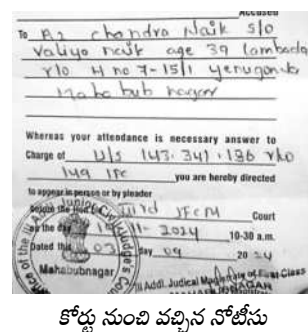 Accused
To A2 chandra Naik s/o
Valiya naik age 39 lambada
r/o H no 7-15/1 yenugonda
Maha bub nagar
Whereas your attendance is necessary answer to
Charge of U/s 143. 341. 186 r/o
149 IPC you are hereby directed
to appear in person or by pleader
before the Hon' IIIrd JFCM Court
on the day 11-2024 10-30 a.m.
Dated this 03 day 09 2024
Mahabubnagar
III Addl. Judical Magistrate of First Class
కోర్టు నుంచి వచ్చిన నోటీసు